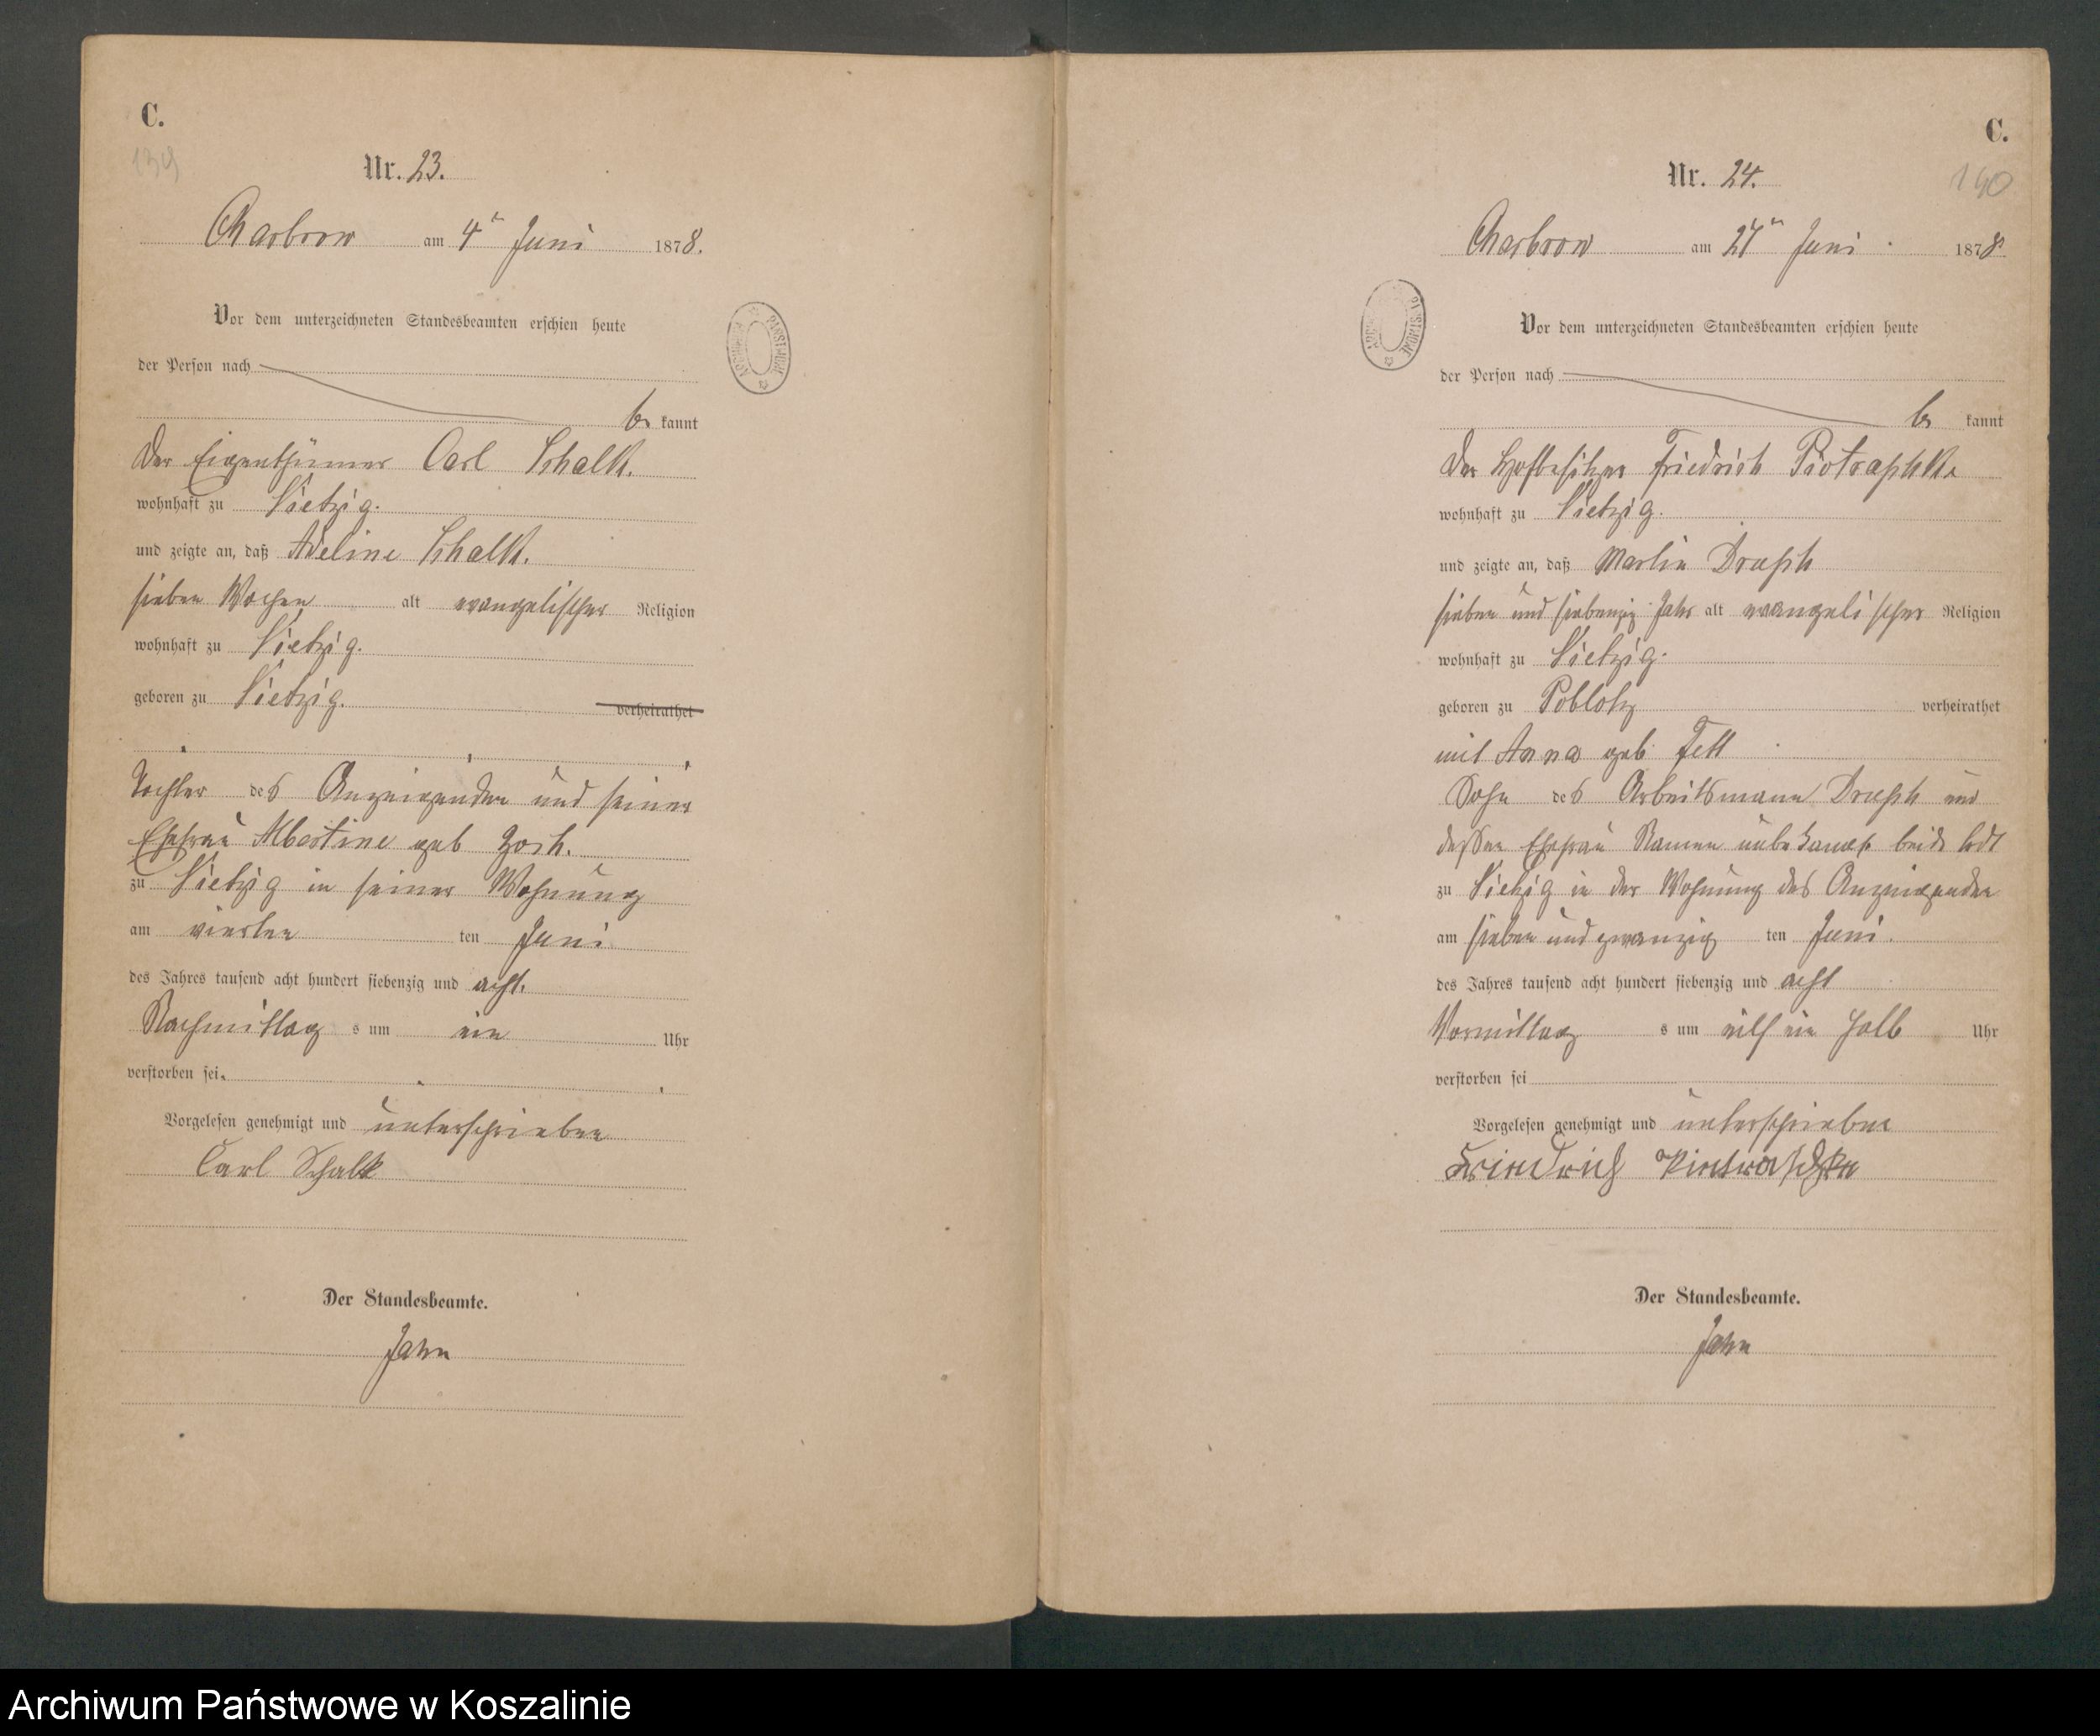 C.
139
Nr. 23.
Charbrow am 4ten Juni 1878.
Vor dem unterzeichneten Standesbeamten erschien heute
der Person nach
be kannt
der Eigenthümer Carl Schalk.
wohnhaft zu Vietzig.
und zeigte an, daß Adeline Schalk.
sieben Wochen alt evangelischer Religion
wohnhaft zu Vietzig.
geboren zu Vietzig. verheirathet
Tochter des Anzeigenden und seiner
Ehefrau Albertine geb
zu Vietzig in seiner Wohnung
am vierten ten Juni
des Jahres tausend acht hundert siebenzig und acht.
Nachmittag s um ein Uhr
verstorben sei.
Vorgelesen genehmigt und unterschrieben
Carl Schalk
Der Standesbeamte.
Jahn
C.
140
Nr. 24.
Charbrow am 27ten Juni 1878
Vor dem unterzeichneten Standesbeamten erschien heute
der Person nach
be kannt
der Hofbesitzer Friedrich
wohnhaft zu Vietzig.
und zeigte an, daß Martin
sieben und siebenzig Jahr alt evangelischer Religion
wohnhaft zu Vietzig.
geboren zu Poblotz verheirathet
mit Anna geb Fett
Sohn des Arbeitsmann und
dessen Ehefrau Namen unbekannt beide todt
zu Vietzig in der Wohnung des Anzeigenden
am sieben und zwanzig ten Juni.
des Jahres tausend acht hundert siebenzig und acht
Vormittag s um elf ein halb Uhr
verstorben sei
Vorgelesen genehmigt und unterschrieben
Friedrich
Der Standesbeamte.
Jahn
Archiwum Państwowe w Koszalinie